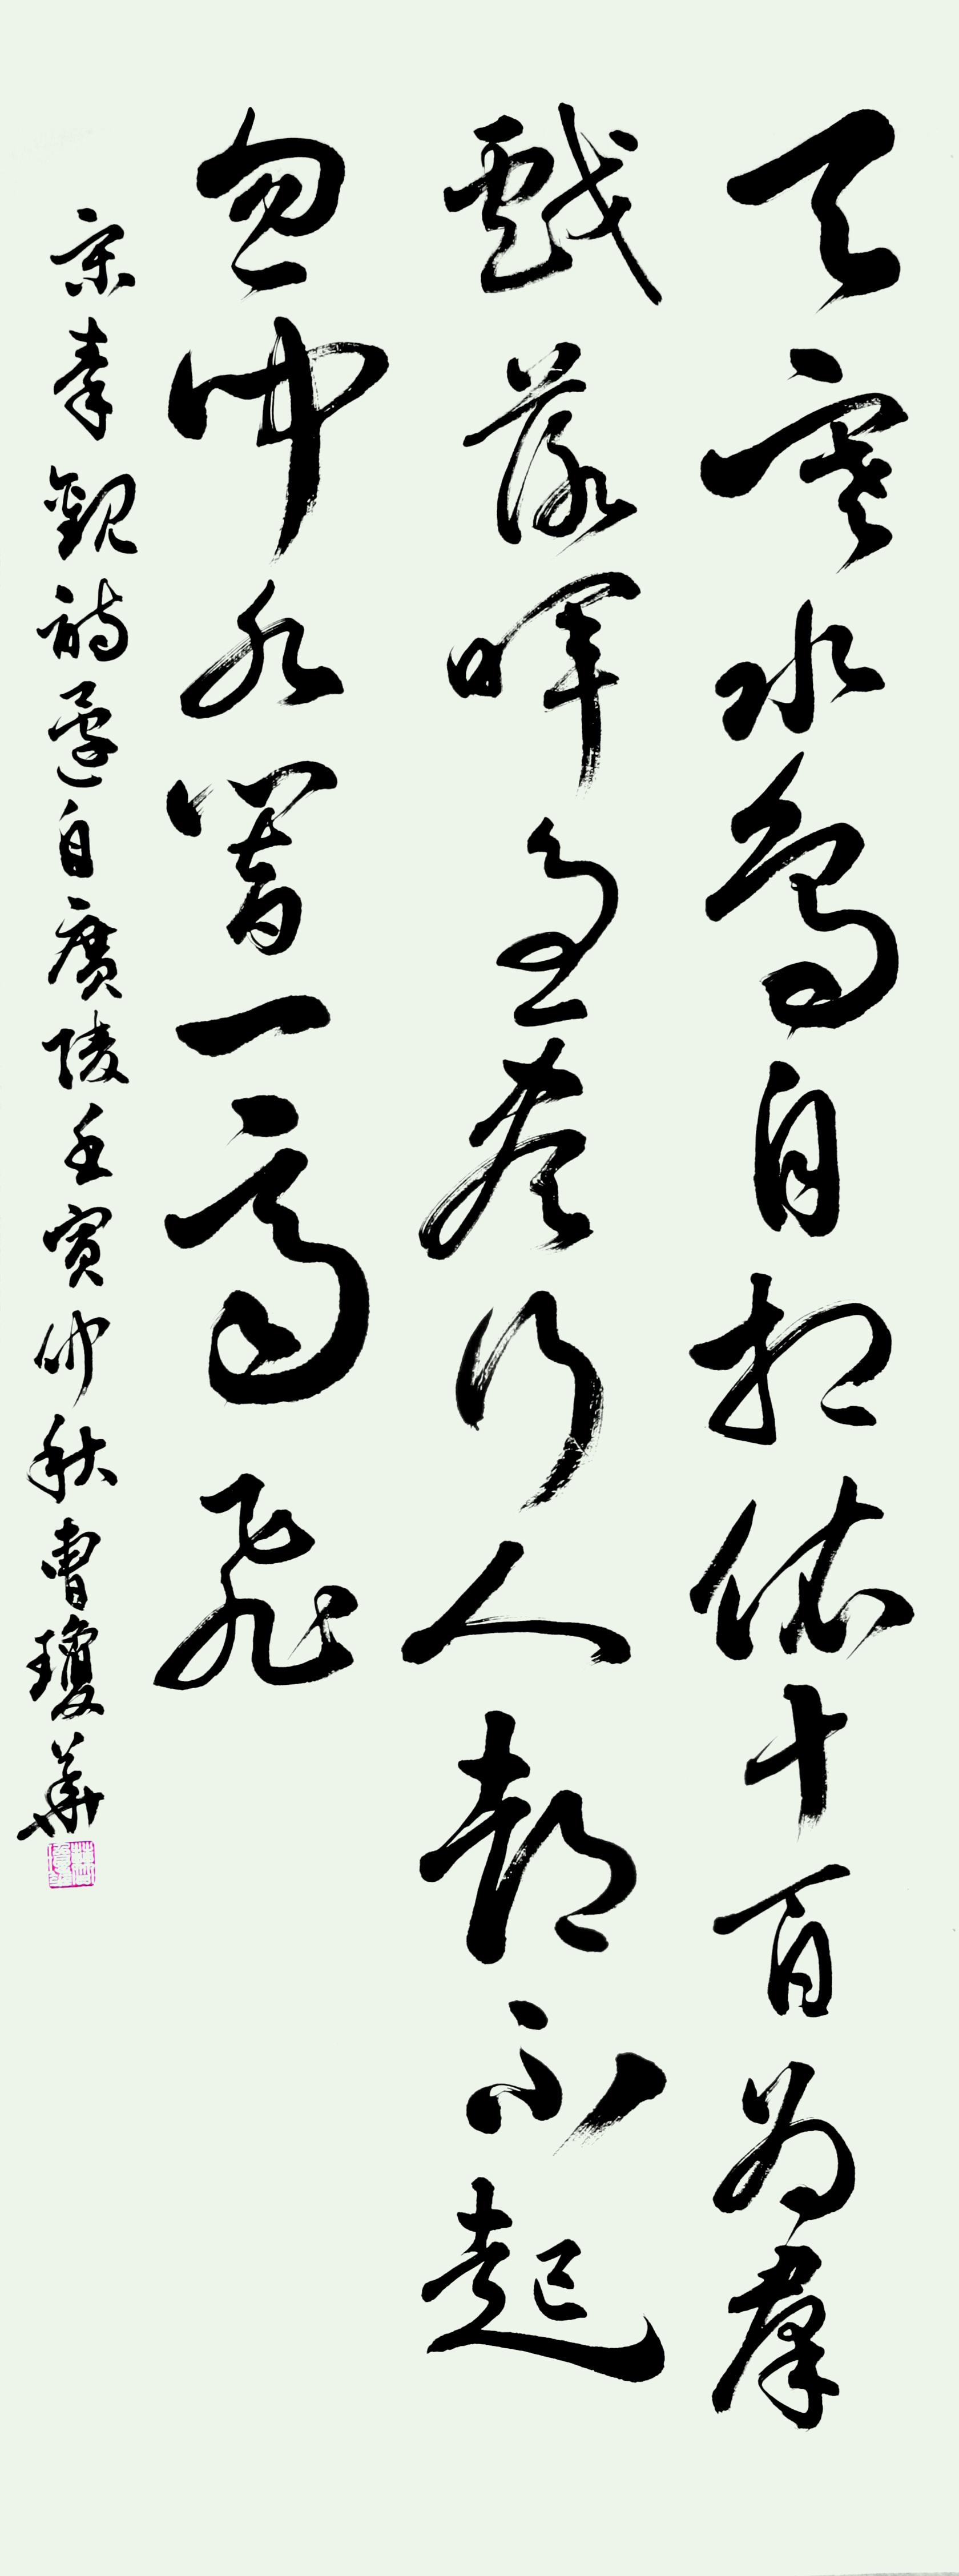 天寒水鳥自相依十百為羣
戲落暉過盡行人都不起
忽聞冰響一齊飛
宋秦觀詩還自廣陵壬寅仲秋曹瓊華